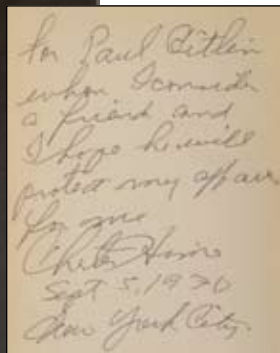 For Paul Gitlin
whom I consider
a friend and
I hope he will
protect my affairs
for me
Chester Himes
Sept 5, 1970
New York City